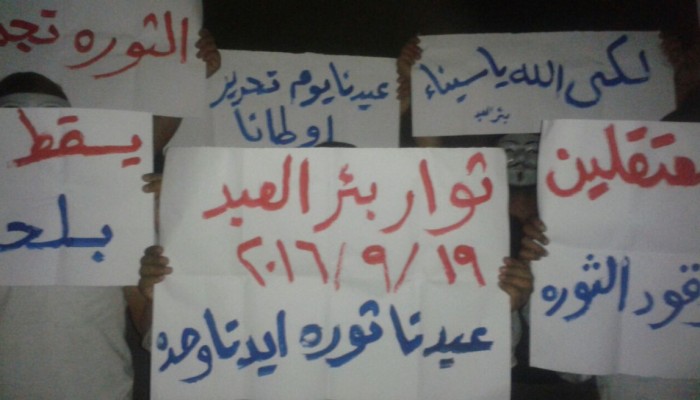 الثوره تجد
عيدنا يوم تحرير
اوطانا
لكى الله يا سيناء
بئر العبد
يسقط
بلحـ
ثوار بئر العبد
١٩/٩/٢٠١٦
عيدنا ثوره ايدنا وحده
معتقلين
وقود الثوره